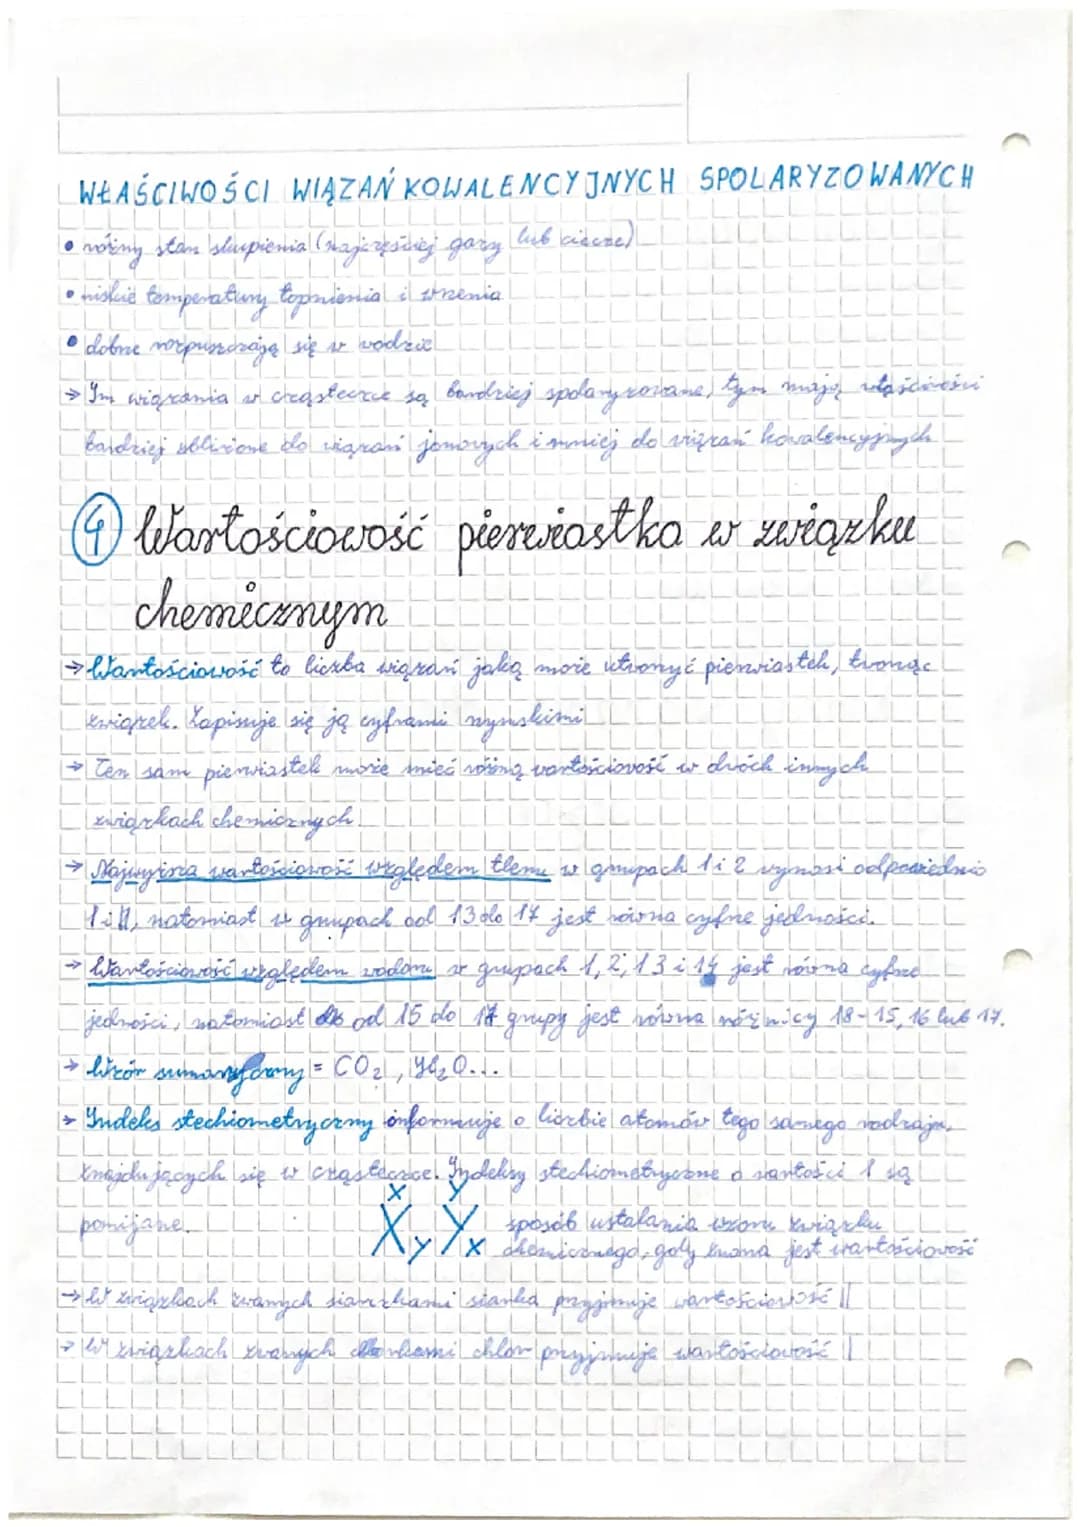 WŁAŚCIWOŚCI WIĄZAŃ KOWALENCYJNYCH SPOLARYZOWANYCH
• różny stan skupienia (najczęściej gazy lub ciecze)
• niskie temperatury topnienia i wrzenia
• dobrze rozpuszczają się w wodzie
→ Im wiązania w cząsteczce są bardziej spolaryzowane, tym mają właściwości
bardziej zbliżone do wiązań jonowych i mniej do wiązań kowalencyjnych
4 Wartościowość pierwiastka w związku
chemicznym
→ Wartościowość to liczba wiązań jaką może utworzyć pierwiastek, tworząc
związek. Zapisuje się ją cyframi rzymskimi
→ Ten sam pierwiastek może mieć różną wartościowość w dwóch innych
związkach chemicznych.
→ Najwyższa wartościowość względem tlenu w grupach 1 i 2 wynosi odpowiednio
I i II, natomiast w grupach od 13 do 17 jest równa cyfrze jedności.
→ Wartościowość względem wodoru w grupach 1, 2, 13 i 14 jest równa cyfrze
jedności, natomiast od 15 do 17 grupy jest równa różnicy 18-15, 16 lub 17.
→ Wzór sumaryczny = CO₂, H₂O...
→ Indeks stechiometryczny informuje o liczbie atomów tego samego rodzaju,
znajdujących się w cząsteczce. Indeksy stechiometryczne o wartości 1 są
pomijane.
x y
X y Y x
sposób ustalania wzoru związku
chemicznego, gdy znana jest wartościowość
→ W związkach zwanych siarczkami siarka przyjmuje wartościowość II
→ W związkach zwanych chlorkami chlor przyjmuje wartościowość I